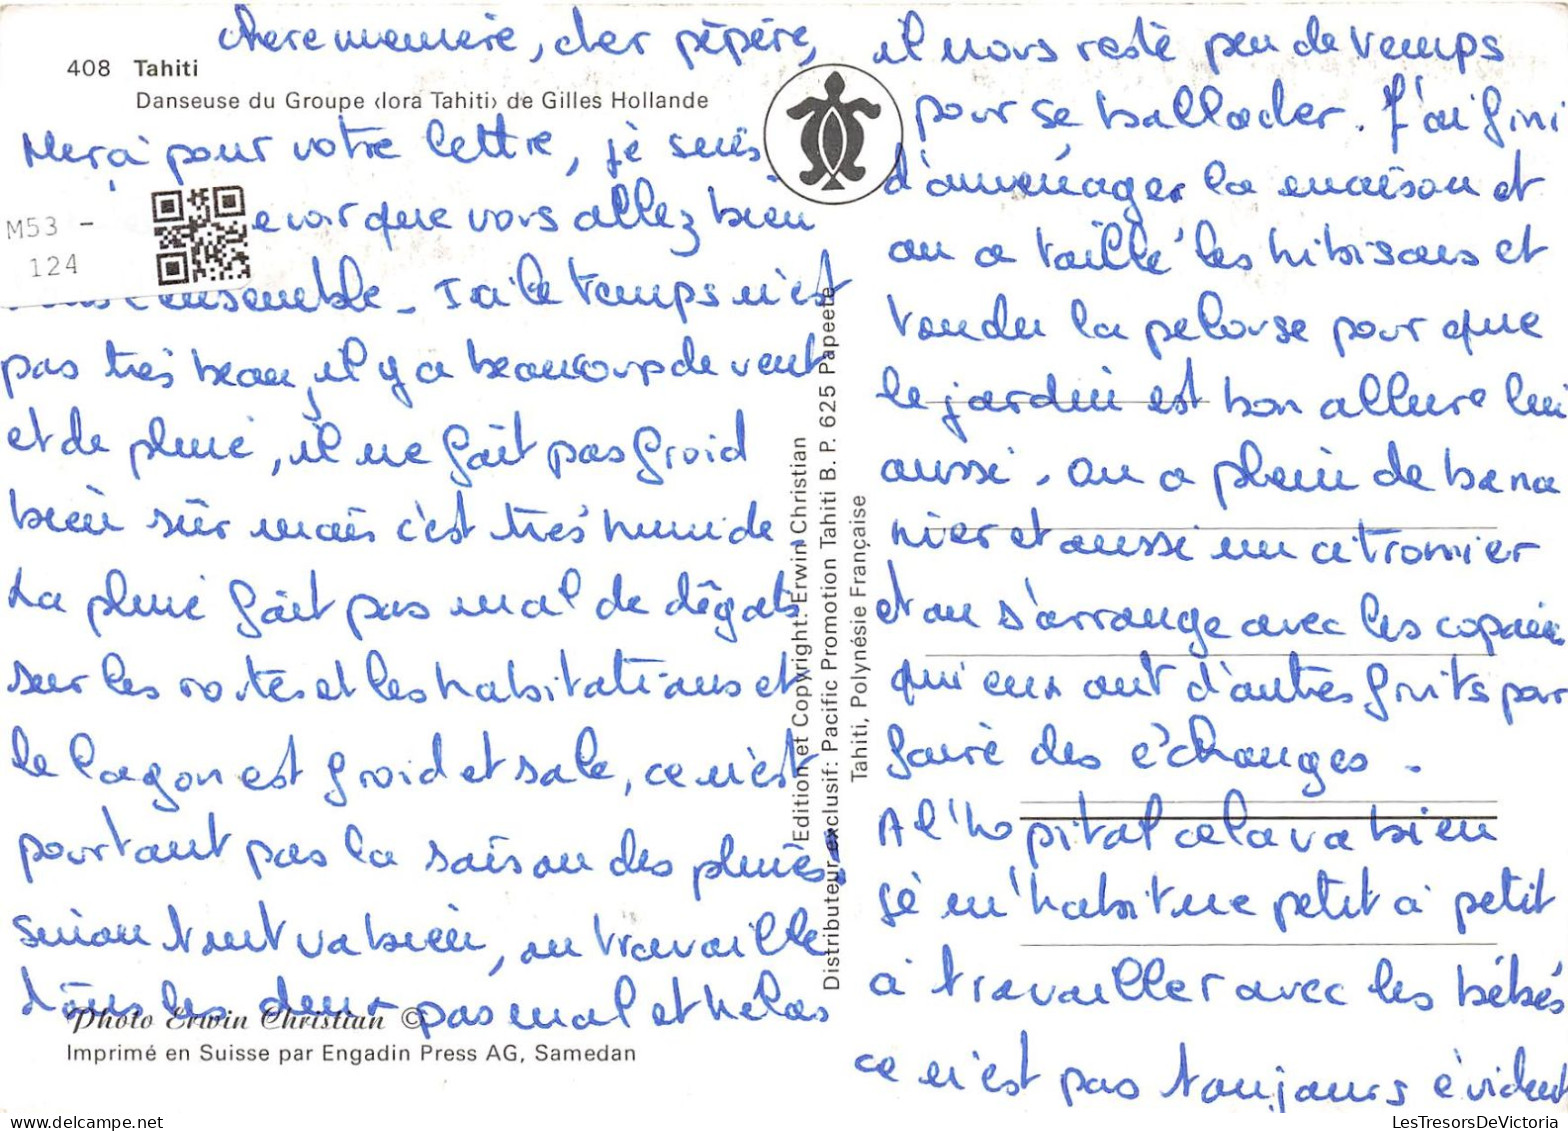 chere memere, cher pépère,
408 Tahiti
Danseuse du Groupe ‹Iora Tahiti› de Gilles Hollande
Merci pour votre lettre, je suis
voir que vous allez bien
M53 -
124
ensemble - Ici le temps n'est
pas très beau, il y a beaucoup de vent
et de pluie, il ne fait pas froid
bien sûr mais c'est très humide
La pluie fait pas mal de dégats
sur les routes et les habitations et
le lagon est froid et sale, ce n'est
pourtant pas la saison des pluies!
sinon tout va bien, on travaille
tous les deux pas mal et hélas
Photo Erwin Christian ©
Imprimé en Suisse par Engadin Press AG, Samedan
Edition et Copyright: Erwin Christian
Distributeur exclusif: Pacific Promotion Tahiti B. P. 625 Papeete
Tahiti, Polynésie Française
il nous reste peu de temps
pour se ballader. J'ai fini
d'aménager la maison et
on a taillé les hibiscus et
tondu la pelouse pour que
le jardin est bon allure lui
aussi. On a plein de bana
nier et aussi un citronier
et on s'arrange avec les copains
qui eux ont d'autres fruits pour
faire des échanges.
A l'hopital cela va bien
je m'habitue petit à petit
à travailler avec les bébés
ce n'est pas toujours évident
LesTresorsDeVictoria